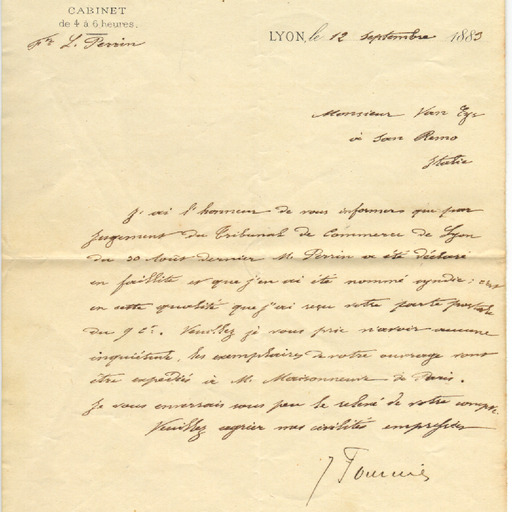 CABINET
de 4 à 6 heures.
Ft L. Perrin
LYON, le 12 Septembre 1883
Monsieur Van Eys
à San Remo
Italie
J'ai l'honneur de vous informer que par
Jugement du Tribunal de Commerce de Lyon
du 30 Août dernier M. Perrin a été déclaré
en faillite et que j'en ai été nommé syndic: c'est
en cette qualité que j'ai reçu votre carte postale
du 9 ct. Veuillez je vous prie n'avoir aucune
inquiétude, les exemplaires de votre ouvrage vont
être expédiés à M. Maisonneuve de Paris.
Je vous enverrais sous peu le relevé de votre compte.
Veuillez agréer mes civilités empressées
J Fournier